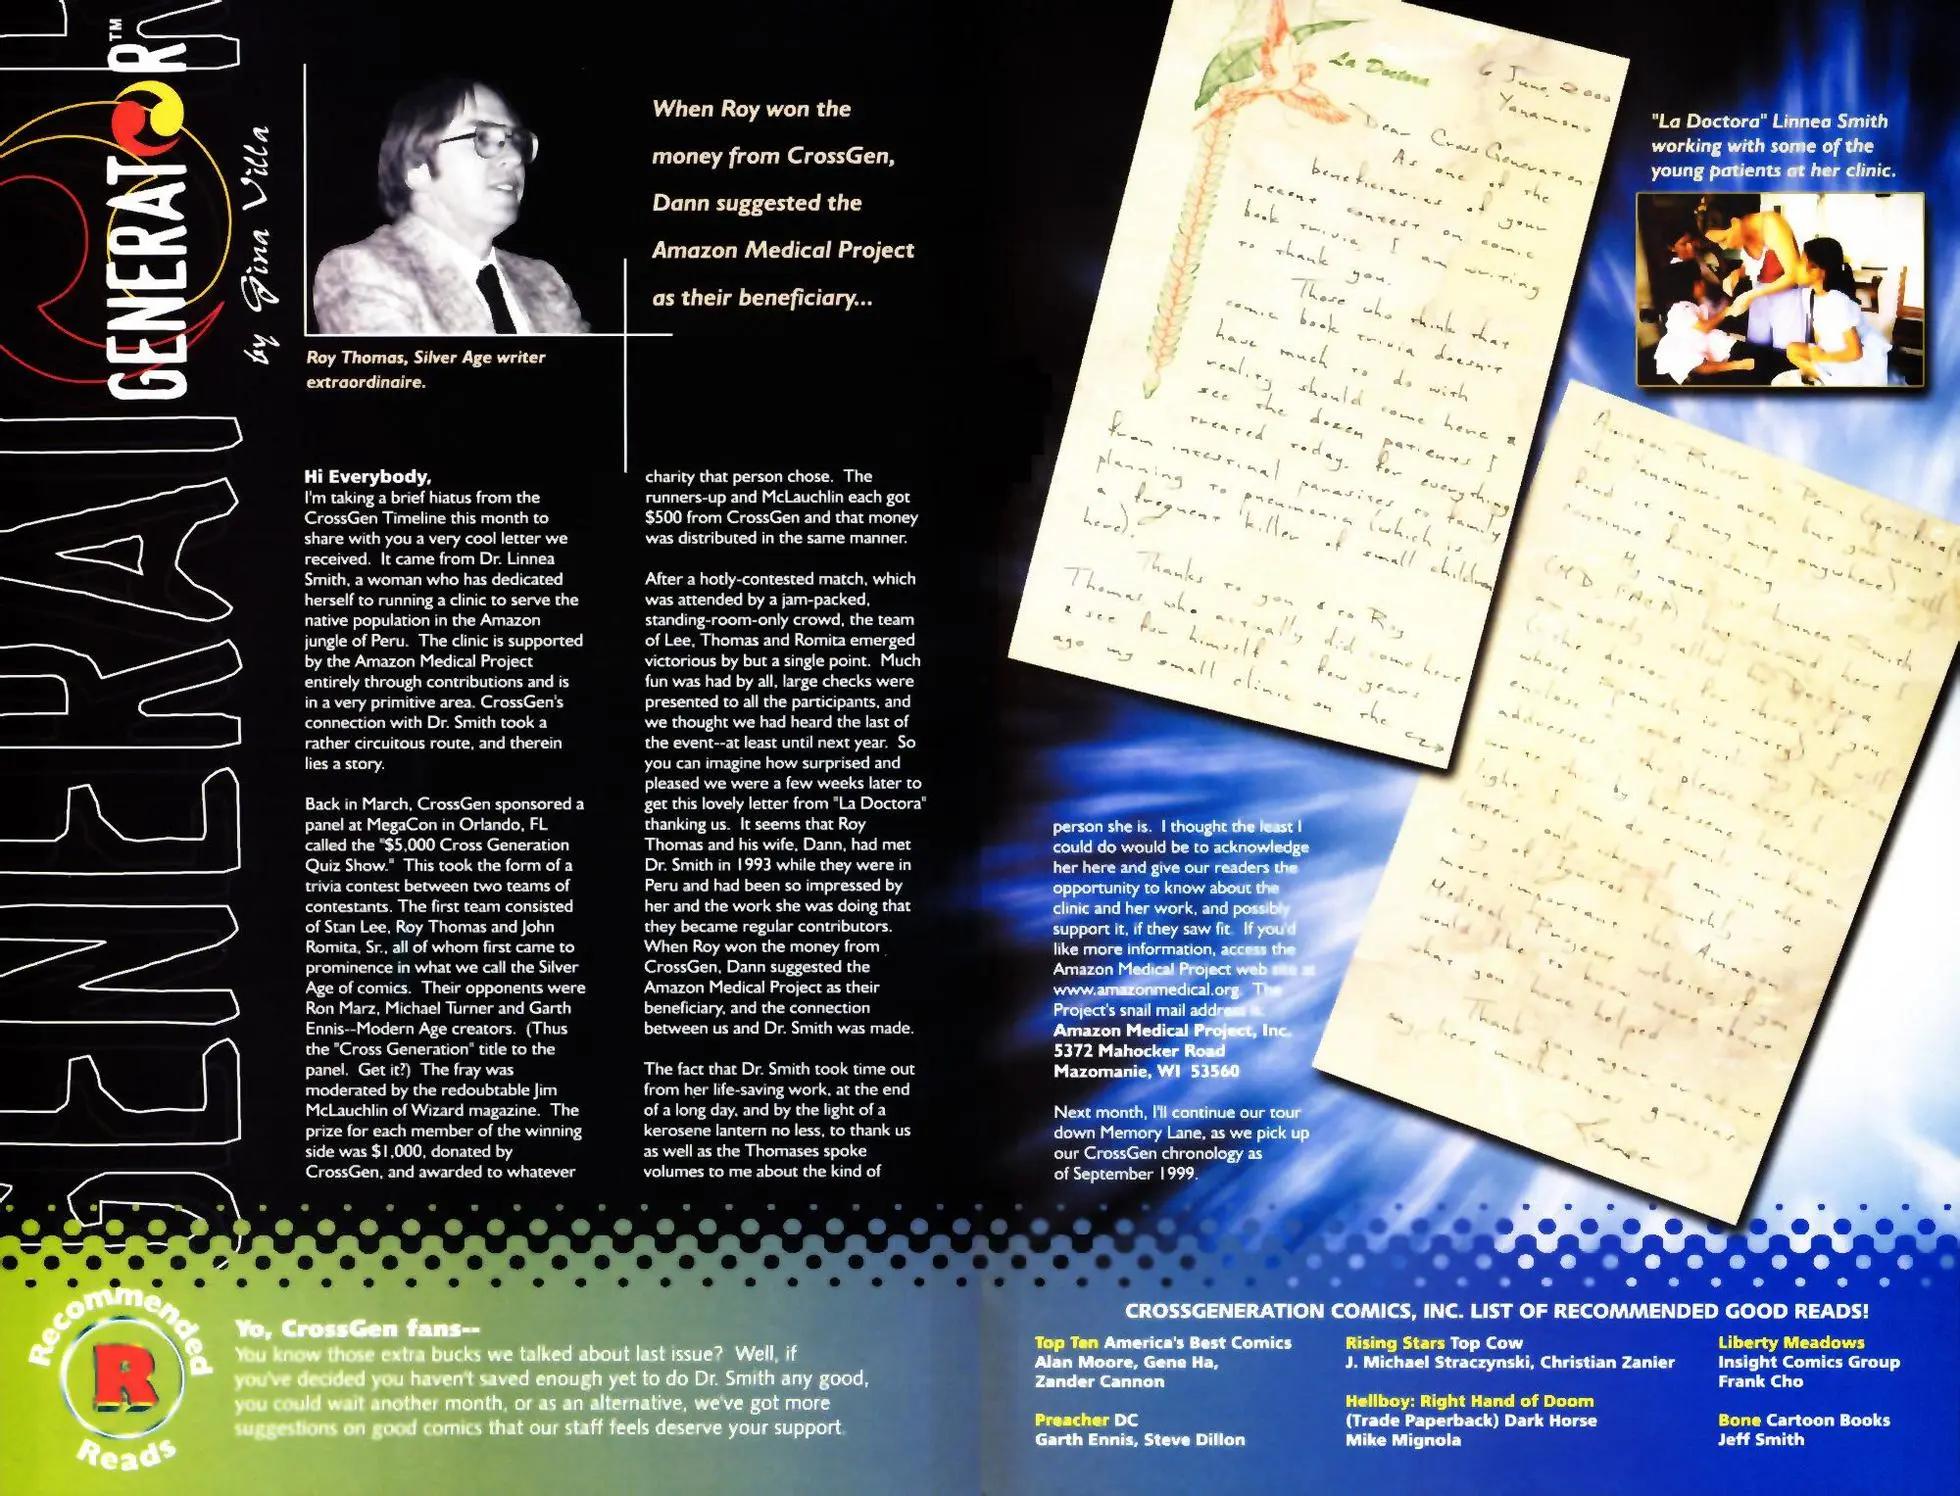 GENERATOR™
by Gina Villa
When Roy won the
money from CrossGen,
Dann suggested the
Amazon Medical Project
as their beneficiary...
Roy Thomas, Silver Age writer
extraordinaire.
Hi Everybody,
I'm taking a brief hiatus from the
CrossGen Timeline this month to
share with you a very cool letter we
received. It came from Dr. Linnea
Smith, a woman who has dedicated
herself to running a clinic to serve the
native population in the Amazon
jungle of Peru. The clinic is supported
by the Amazon Medical Project
entirely through contributions and is
in a very primitive area. CrossGen's
connection with Dr. Smith took a
rather circuitous route, and therein
lies a story.
Back in March, CrossGen sponsored a
panel at MegaCon in Orlando, FL
called the "$5,000 Cross Generation
Quiz Show." This took the form of a
trivia contest between two teams of
contestants. The first team consisted
of Stan Lee, Roy Thomas and John
Romita, Sr., all of whom first came to
prominence in what we call the Silver
Age of comics. Their opponents were
Ron Marz, Michael Turner and Garth
Ennis--Modern Age creators. (Thus
the "Cross Generation" title to the
panel. Get it?) The fray was
moderated by the redoubtable Jim
McLauchlin of Wizard magazine. The
prize for each member of the winning
side was $1,000, donated by
CrossGen, and awarded to whatever
charity that person chose. The
runners-up and McLauchlin each got
$500 from CrossGen and that money
was distributed in the same manner.
After a hotly-contested match, which
was attended by a jam-packed,
standing-room-only crowd, the team
of Lee, Thomas and Romita emerged
victorious by but a single point. Much
fun was had by all, large checks were
presented to all the participants, and
we thought we had heard the last of
the event--at least until next year. So
you can imagine how surprised and
pleased we were a few weeks later to
get this lovely letter from "La Doctora"
thanking us. It seems that Roy
Thomas and his wife, Dann, had met
Dr. Smith in 1993 while they were in
Peru and had been so impressed by
her and the work she was doing that
they became regular contributors.
When Roy won the money from
CrossGen, Dann suggested the
Amazon Medical Project as their
beneficiary, and the connection
between us and Dr. Smith was made.
The fact that Dr. Smith took time out
from her life-saving work, at the end
of a long day, and by the light of a
kerosene lantern no less, to thank us
as well as the Thomases spoke
volumes to me about the kind of
person she is. I thought the least I
could do would be to acknowledge
her here and give our readers the
opportunity to know about the
clinic and her work, and possibly
support it, if they saw fit. If you'd
like more information, access the
Amazon Medical Project web site at
www.amazonmedical.org. The
Project's snail mail address is:
Amazon Medical Project, Inc.
5372 Mahocker Road
Mazomanie, WI 53560
Next month, I'll continue our tour
down Memory Lane, as we pick up
our CrossGen chronology as
of September 1999.
La Doctora
6 June, 2000
Yanamono
Dear CrossGeneration-
As one of the
beneficiaries of your
recent contest on comic
book trivia, I am writing
to thank you.
Those who think that
comic book trivia doesn't
have much to do with
reality should come here &
see the dozen patients I
treated today, for everything
from intestinal parasites to family
planning to pneumonia (which is
a frequent killer of small children
here).
Thanks to you & to Roy
Thomas, who actually did come here
& see for himself a few years
ago my small clinic on the
Amazon River in Peru (specifically
the Yanamono area, but you won't
find it on any map anywhere) will
continue functioning
My name is Linnea Smith
(MD, FACP) but around here I
am mostly called La Doctora
(
whose Spanish is
enclose
addresses
write this by kerosene lantern
light. I can do e-mail
letters only when I am in the
more important the Amazon
Medical Project website if you
would like to know more about
what you have helped
Thank you again, or as we
say here muchisimas gracias
Linnea
"La Doctora" Linnea Smith
working with some of the
young patients at her clinic.
Recommended
R
Reads
Yo, CrossGen fans--
You know those extra bucks we talked about last issue? Well, if
you've decided you haven't saved enough yet to do Dr. Smith any good,
you could wait another month, or as an alternative, we've got more
suggestions on good comics that our staff feels deserve your support.
CROSSGENERATION COMICS, INC. LIST OF RECOMMENDED GOOD READS!
Top Ten America's Best Comics
Alan Moore, Gene Ha,
Zander Cannon
Preacher DC
Garth Ennis, Steve Dillon
Rising Stars Top Cow
J. Michael Straczynski, Christian Zanier
Hellboy: Right Hand of Doom
(Trade Paperback) Dark Horse
Mike Mignola
Liberty Meadows
Insight Comics Group
Frank Cho
Bone Cartoon Books
Jeff Smith